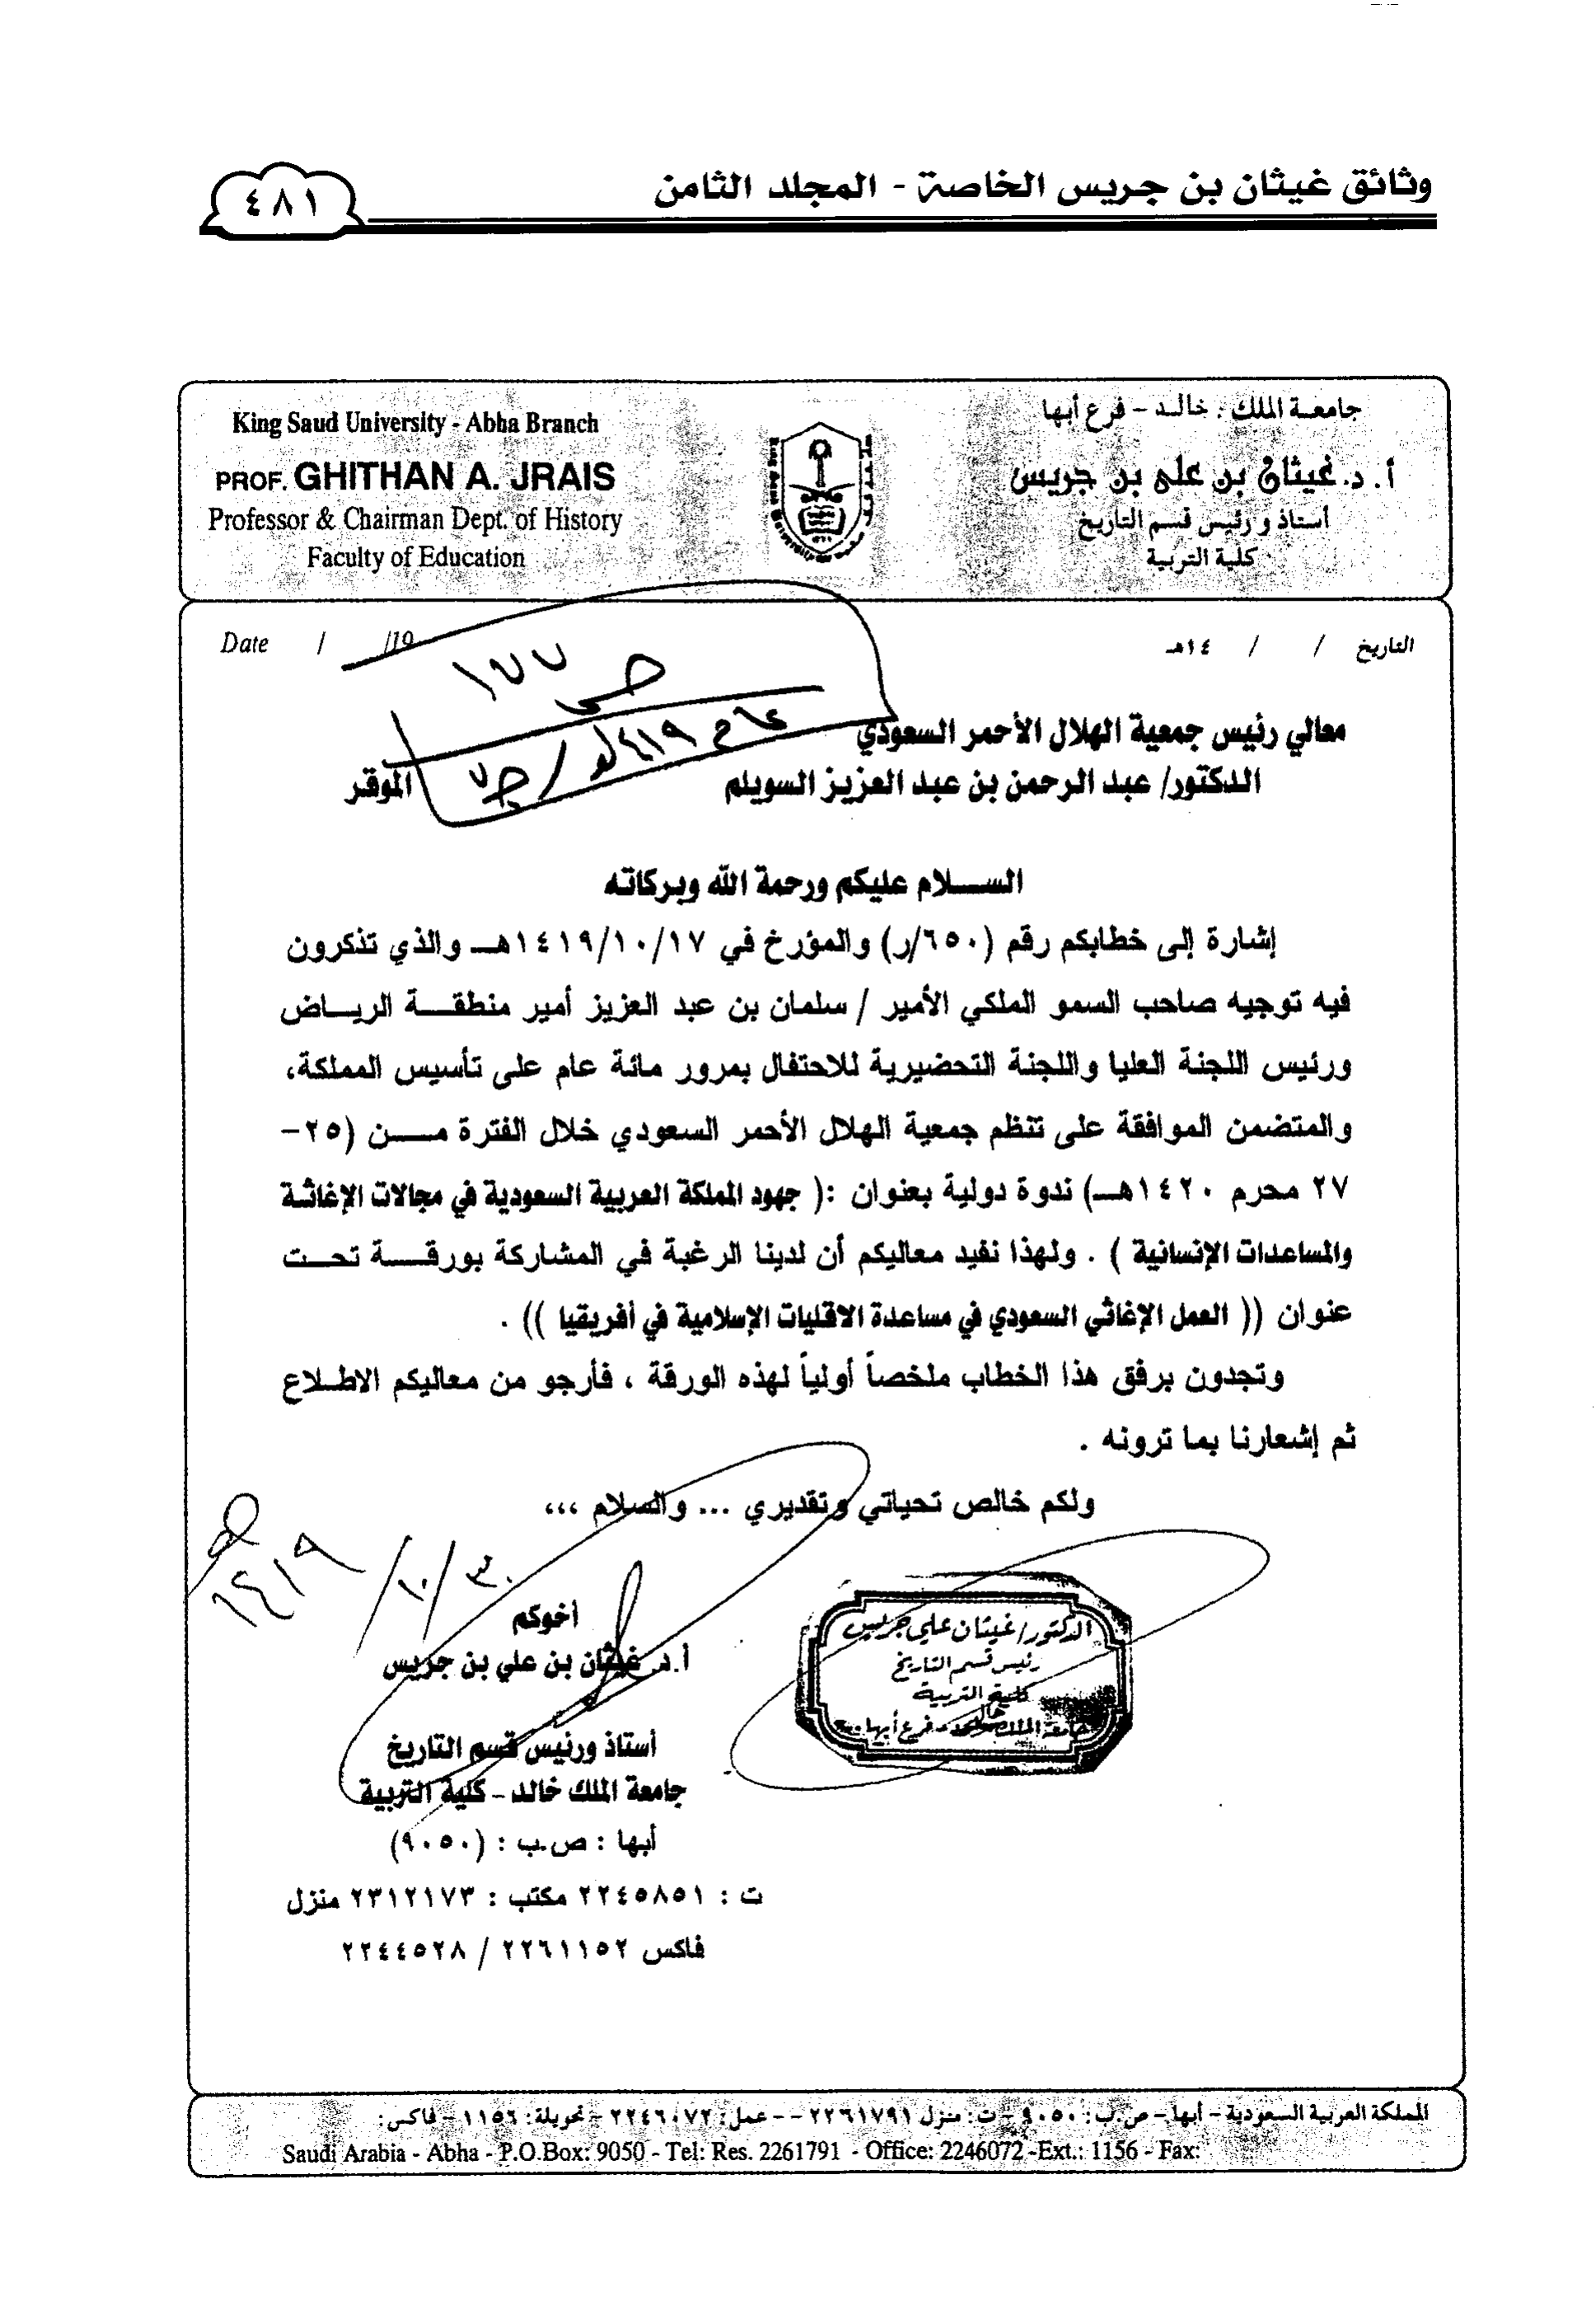 وثائق غيثان بن جريس الخاصة - المجلد الثامن
٤٨١
جامعة الملك خالد - فرع أبها
أ. د. غيثان بن على بن جريس
أستاذ و رئيس قسم التاريخ
كلية التربية
King Saud University - Abha Branch
PROF. GHITHAN A. JRAIS
Professor & Chairman Dept. of History
Faculty of Education
التاريخ / / ١٤هـ
Date / /19
١٧٧
معالي رئيس جمعية الهلال الأحمر السعودي
الدكتور/ عبد الرحمن بن عبد العزيز السويلم الموقر
السلام عليكم ورحمة الله وبركاته
إشارة إلى خطابكم رقم (٦٥٠/ر) والمؤرخ في ١٤١٩/١٠/١٧هـ والذي تذكرون
فيه توجيه صاحب السمو الملكي الأمير / سلمان بن عبد العزيز أمير منطقة الرياض
ورئيس اللجنة العليا واللجنة التحضيرية للاحتفال بمرور مائة عام على تأسيس المملكة،
والمتضمن الموافقة على تنظم جمعية الهلال الأحمر السعودي خلال الفترة من (٢٥-
٢٧ محرم ١٤٢٠هـ) ندوة دولية بعنوان :( جهود المملكة العربية السعودية في مجالات الإغاثة
والمساعدات الإنسانية ) . ولهذا نفيد معاليكم أن لدينا الرغبة في المشاركة بورقة تحت
عنوان (( العمل الإغاثي السعودي في مساعدة الاقليات الإسلامية في أفريقيا )) .
وتجدون برفق هذا الخطاب ملخصاً أولياً لهذه الورقة ، فأرجو من معاليكم الاطلاع
ثم إشعارنا بما ترونه .
ولكم خالص تحياتي وتقديري ... والسلام ،،،
٣٠/١٠/١٤١٩
أخوكم
أ.د. غيثان بن علي بن جريس
أستاذ ورئيس قسم التاريخ
جامعة الملك خالد - كلية التربية
أبها : ص.ب : (٩٠٥٠)
ت : ٢٢٤٥٨٥١ مكتب : ٢٣١٢١٧٣ منزل
فاكس ٢٢٦١١٥٢ / ٢٢٤٤٥٢٨
الدكتور/ غيثان علي جريس
رئيس قسم التاريخ
كلية التربية
جامعة الملك خالد - فرع أبها
المملكة العربية السعودية - أبها - ص.ب: ٩٠٥٠ - ت: منزل ٢٢٦١٧٩١ - - عمل: ٢٢٤٦٠٧٢ - تحويلة: ١١٥٦ - فاكس:
Saudi Arabia - Abha - P.O.Box: 9050 - Tel: Res. 2261791 - Office: 2246072 -Ext.: 1156 - Fax: